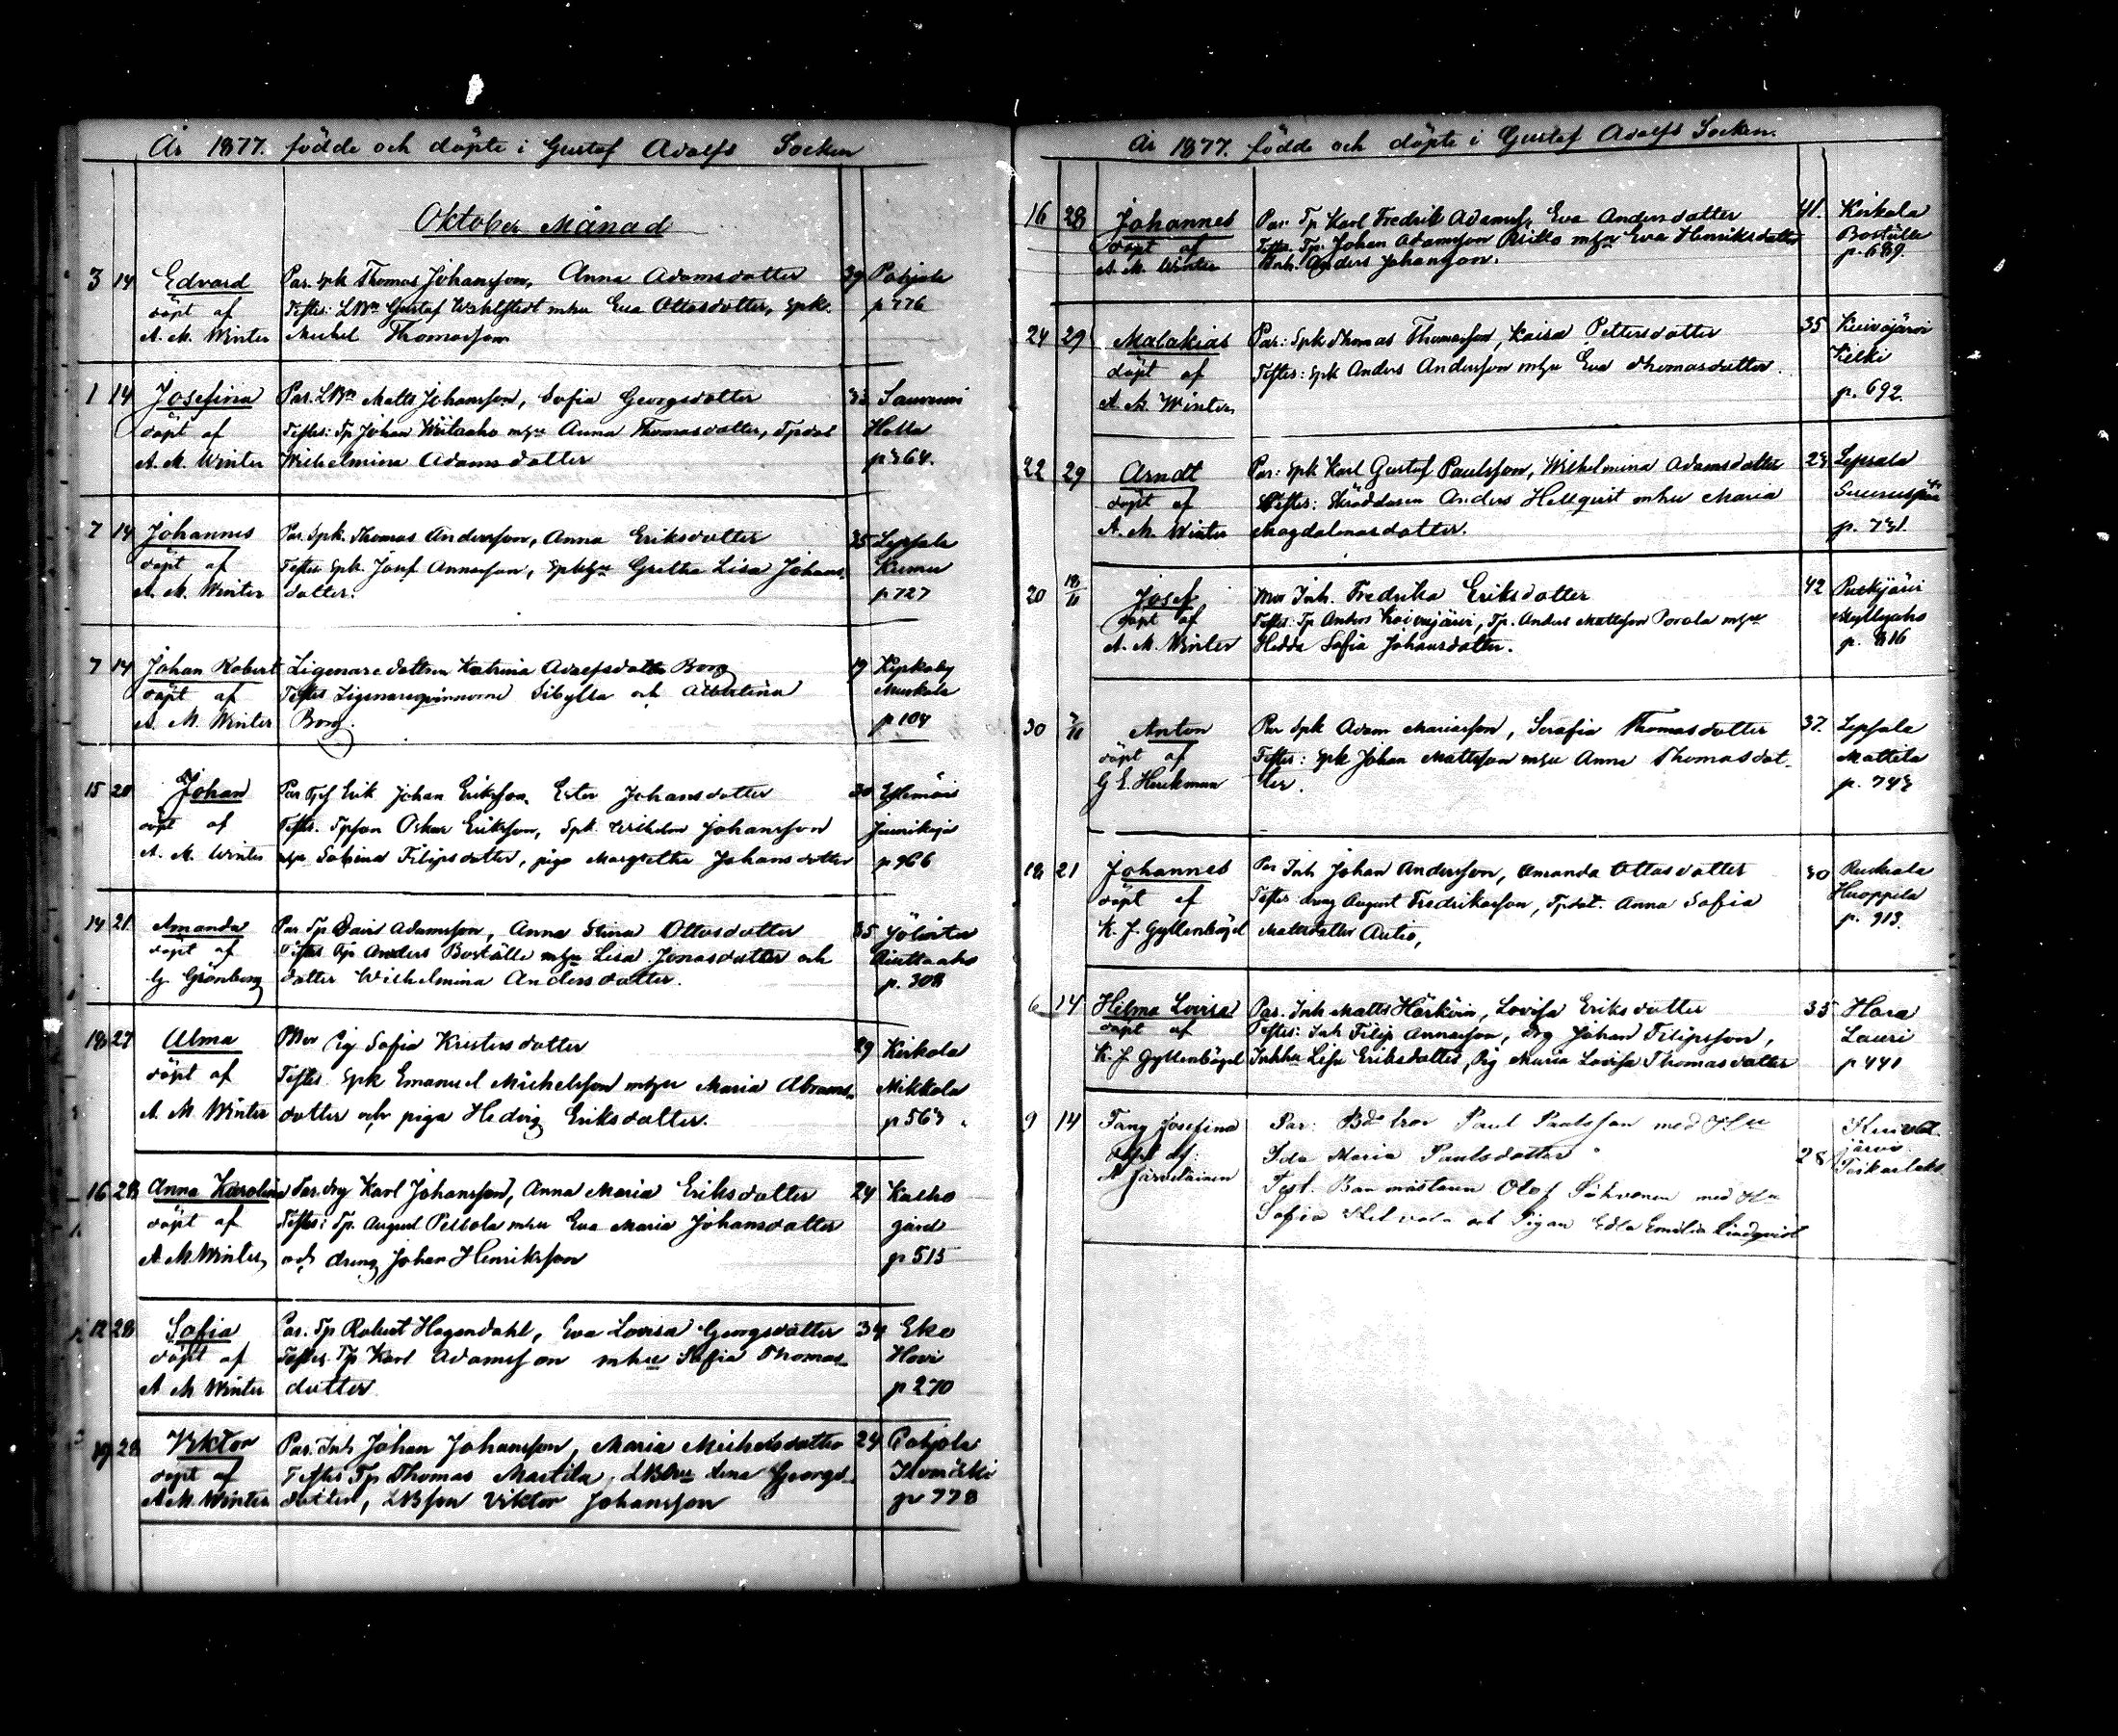 År 1877. födde och döpte i Gustaf Adolfs Socken
Oktober Månad
3 14 Edvard Par. Spk Thomas Johansson, Anna Adamsdotter 39 Pohjola
döpt af Testes: LBn Gustaf Wahlstedt mhu Eva Ottosdotter, Spk. p 776
A. M. Winter Michel Thomasson
1 14 Josefina Par. LBn Matts Johansson, Sofia Georgsdotter 33
döpt af Testes: Tp Johan Wiitaaho mhu Anna Thomasdotter, Tpdot Halla
A. M. Winter Wilhelmina Adamsdotter p 364.
7 14 Johannes Par. Spk. Thomas Andersson, Anna Eriksdotter 25 Lepsala
döpt af Testes Spk. Josef Annasson, Spkhu Gretha Lisa Johans- Kumu
A. M. Winter dotter. p 727
7 14 Johan Robert Ligenaredottren Katrina Adolfsdotter Borg 19 Kirkoby
döpt af Testes Ligenareqvinnorne Sibylla och Albertina Muskala
A. M. Winter Borg. p 104
15 20 Johan Par Tpsf Erik Johan Eriksson, Ester Johansdotter 30
döpt af Testes. Tpson Oskar Eriksson, Spk. Wilhelm Johansson
A. M. Winter mhu Sabina Filipsdotter, piga Margretha Johansdotter p 966
14 21. Amanda Par Tp David Adamsson, Anna Stina Ottosdotter 35
döpt af Testes Tp Anders Boställe mhu Lisa Jonasdotter och
G. Grönberg dotter Wilhelmina Andersdotter. p. 308
18 27 Alma Mor Pig Sofia Kristersdotter 29 Kirkola
döpt af Testes Spk Emanuel Michelsson mhu Maria Abrams- Mikkola
A. M. Winter dotter och piga Hedvig Eriksdotter. p 563
16 28 Anna Karolina Par. drg Karl Johansson, Anna Maria Eriksdotter 24 Kalho
döpt af Testes: Tp. August Pellola mhu Eva Maria Johansdotter gård
A. M. Winter, och dreng Johan Henriksson p 515
12 28 Sofia Par. Tp Robert Hagendahl, Eva Lovisa Georgsdotter 34 Eko
döpt af Testes. Tp Karl Adamsson mhu Sofia Thomas- Hovi
A. M. Winter dotter p 270
19 28 Viktor Par. Inh Johan Johansson, Maria Michelsdotter 24 Pohjola
döpt af Testes Tp Thomas Mastila, LBhu Lena Georgs-
A. M. Winter dotter, LBson Viktor Johansson p 778
År 1877. födde och döpte i Gustaf Adolfs Socken.
16 28 Johannes Par. Tp Karl Fredrik Adamss, Eva Andersdotter 41. Kirkola
döpt af Testes. Tp. Johan Adamsson mhu Eva Henriksdotter Boställe
A. M. Winter Inh. Anders Johansson. p. 689.
24 29 Malakias Par: Spk Thomas Thomasson, Kaisa Pettersdotter 35 Kuivajärvi
döpt af Testes: Spk Anders Andersson mhu Eva Thomasdotter. Kelki
A. M. Winter p. 692.
22 29 Arndt Par: Spk Karl Gustaf Paulsson, Wilhelmina Adamsdotter 23 Lepsala
döpt af Testes: Skräddaren Anders Hellqvist mhu Maria
A. M. Winter Magdalenasdotter. p. 731.
20 18/11 Josef Mor Inh. Fredrika Eriksdotter 42
döpt af Testes: Tp Anders Koivujärvi, Tp. Anders Mattsson Porola mhu Myllyaho
A. M. Winter Hedda Sofia Johansdotter. p. 816
30 Anton Par Spk Adam Mariasson, Serafia Thomasdotter 37. Lepsala
döpt af Testes: Spk Johan Mattsson mhu Anna Thomasdot- Mattila
G E. Heickman ter. p. 743
18 21 Johannes Par Inh Johan Andersson, Amanda Ottosdotter 30 Ruskiala
döpt af Testes dreng August Fredriksson, Tpdot. Anna Sofia Huoppila
K. J. Gyllenbögel Mattsdotter Autio, p. 913.
6 14 Hilma Lovisa Par. Inh Matts Härkön, Lovisa Eriksdotter 35 Hara
döpt af Testes: Inh Filip Annasson, drg Johan Filipsson, Lauri
K. J. Gyllenbögel Inhhu Lisa Eriksdotter, Pig Maria Lovisa Thomasdotter p 441
9 14 Fany Josefina Par: Paul Paulsson med Hu Kuiva-
döpt af: Ida Maria Paulsdotter 28 järvi
A Järveläinen Test. Banmästaren Olof Sihvonen med Hu
Sofia och Pigan Edla Emilia Lindqvist